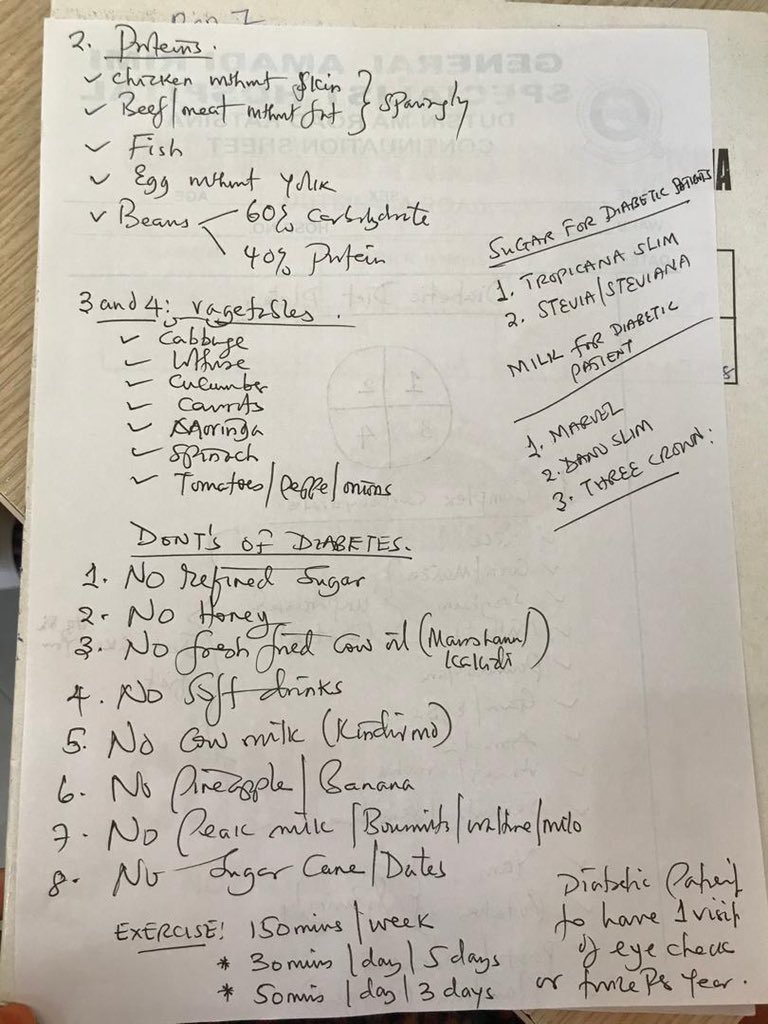 2. Proteins.
✓ Chicken without skin } sparingly
✓ Beef/meat without fat
✓ Fish
✓ Egg without yolk
✓ Beans
60% Carbohydrate
40% Protein
3 and 4: vagetables.
✓ Cabbage
✓ Lettuse
✓ Cucumber
✓ Carrots
✓ Moringa
✓ Spinach
✓ Tomatoes/peppe/onions
SUGAR FOR DIABETIC PATIENTS
1. TROPICANA SLIM
2. STEVIA/STEVIANA
MILK FOR DIABETIC
PATIENT
1. MARVEL
2. DANO SLIM
3. THREE CROWN:
DONT'S OF DIABETES.
1. NO Refined Sugar
2. NO Honey
3. NO fresh fried cow oil (Manshanu/
Kakidi)
4. NO Soft drinks
5. NO Cow milk (Kindirmo)
6. NO Pineapple/Banana
7. NO Peak milk/Bournvita/maltine/milo
8. NO Sugar Cane/Dates
EXERCISE! 150mins/week
* 30mins/day/5 days
* 50mins/day/3 days
Diabetic Patient
to have 1 visit
of eye check
or twice Per Year.
GENERAL AMADI RIMI
SPECIALIST HOSPITAL
DUTSIN MA ROAD KATSINA
CONTINUATION SHEET